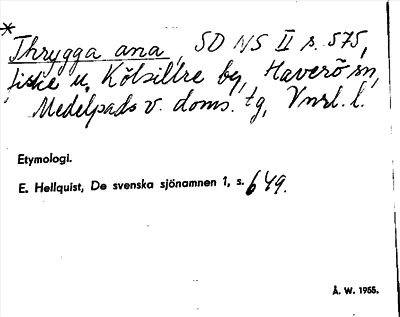 * Thrygga ana, SD NS II s. 575,
fiske u. Kölsillre by, Haverö sn,
Medelpads v. doms. tg, Vnrl. l.
Etymologi.
E. Hellquist, De svenska sjönamnen 1, s. 649.
Å. W. 1955.